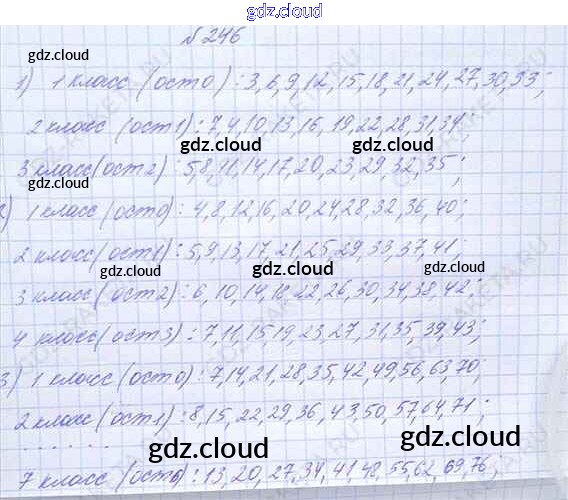 gdz.cloud
№ 246
gdz.cloud gdz.cloud
1) 1 класс (ост 0) : 3, 6, 9, 12, 15, 18, 21, 24, 27, 30, 33;
2 класс (ост 1) : 7, 4, 10, 13, 16, 19, 22, 28, 31, 34;
gdz.cloud gdz.cloud
3 класс (ост 2) : 5, 8, 11, 14, 17, 20, 23, 29, 32, 35;
gdz.cloud
2) 1 класс (ост 0) : 4, 8, 12, 16, 20, 24, 28, 32, 36, 40;
2 класс (ост 1) : 5, 9, 13, 17, 21, 25, 29, 33, 37, 41;
gdz.cloud gdz.cloud
3 класс (ост 2) : 6, 10, 14, 18, 22, 26, 30, 34, 38, 42;
4 класс (ост 3) : 7, 11, 15, 19, 23, 27, 31, 35, 39, 43;
3) 1 класс (ост 0) : 7, 14, 21, 28, 35, 42, 49, 56, 63, 70;
gdz.cloud gdz.cloud
2 класс (ост 1) : 8, 15, 22, 29, 36, 43, 50, 57, 64, 71;
. . . . . .
gdz.cloud gdz.cloud
7 класс (ост 6) : 13, 20, 27, 34, 41, 48, 55, 62, 69, 76;